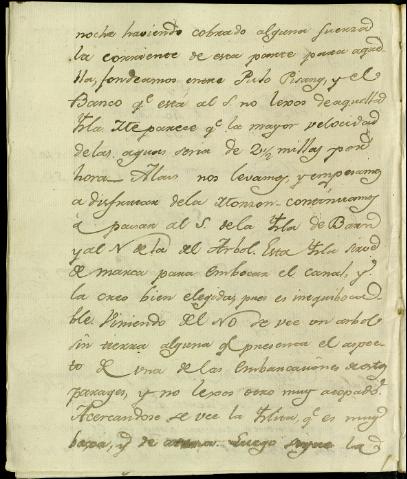 noche haviendo cobrado alguna fuerza
la corriente de esta parte para aque
lla, fondeamos entre Pulo Pisang, y el
Banco qe está al S. no lexos de aquella
Isla. Me parece qe la mayor velocidad
de las aguas seria de 2½ millas por
hora. A las nos levamos, y empesamos
a disfrutar de la Monzon continuamos
á pasar al S. de la Isla de Barn
y al N de la del Arbol. Esta Isla sirve
de marca para embocar el canal, y
la creo bien elegida, pues es inequiboca-
ble. Viniendo del NO se vee un arbol
sin tierra alguna qe presenta el aspec-
to de una de las embarcaciones de estos
parages, y no lexos otro muy acopado.
Acercandose se vee la Islita, qe es muy
baxa, y de arena. Luego sigue la